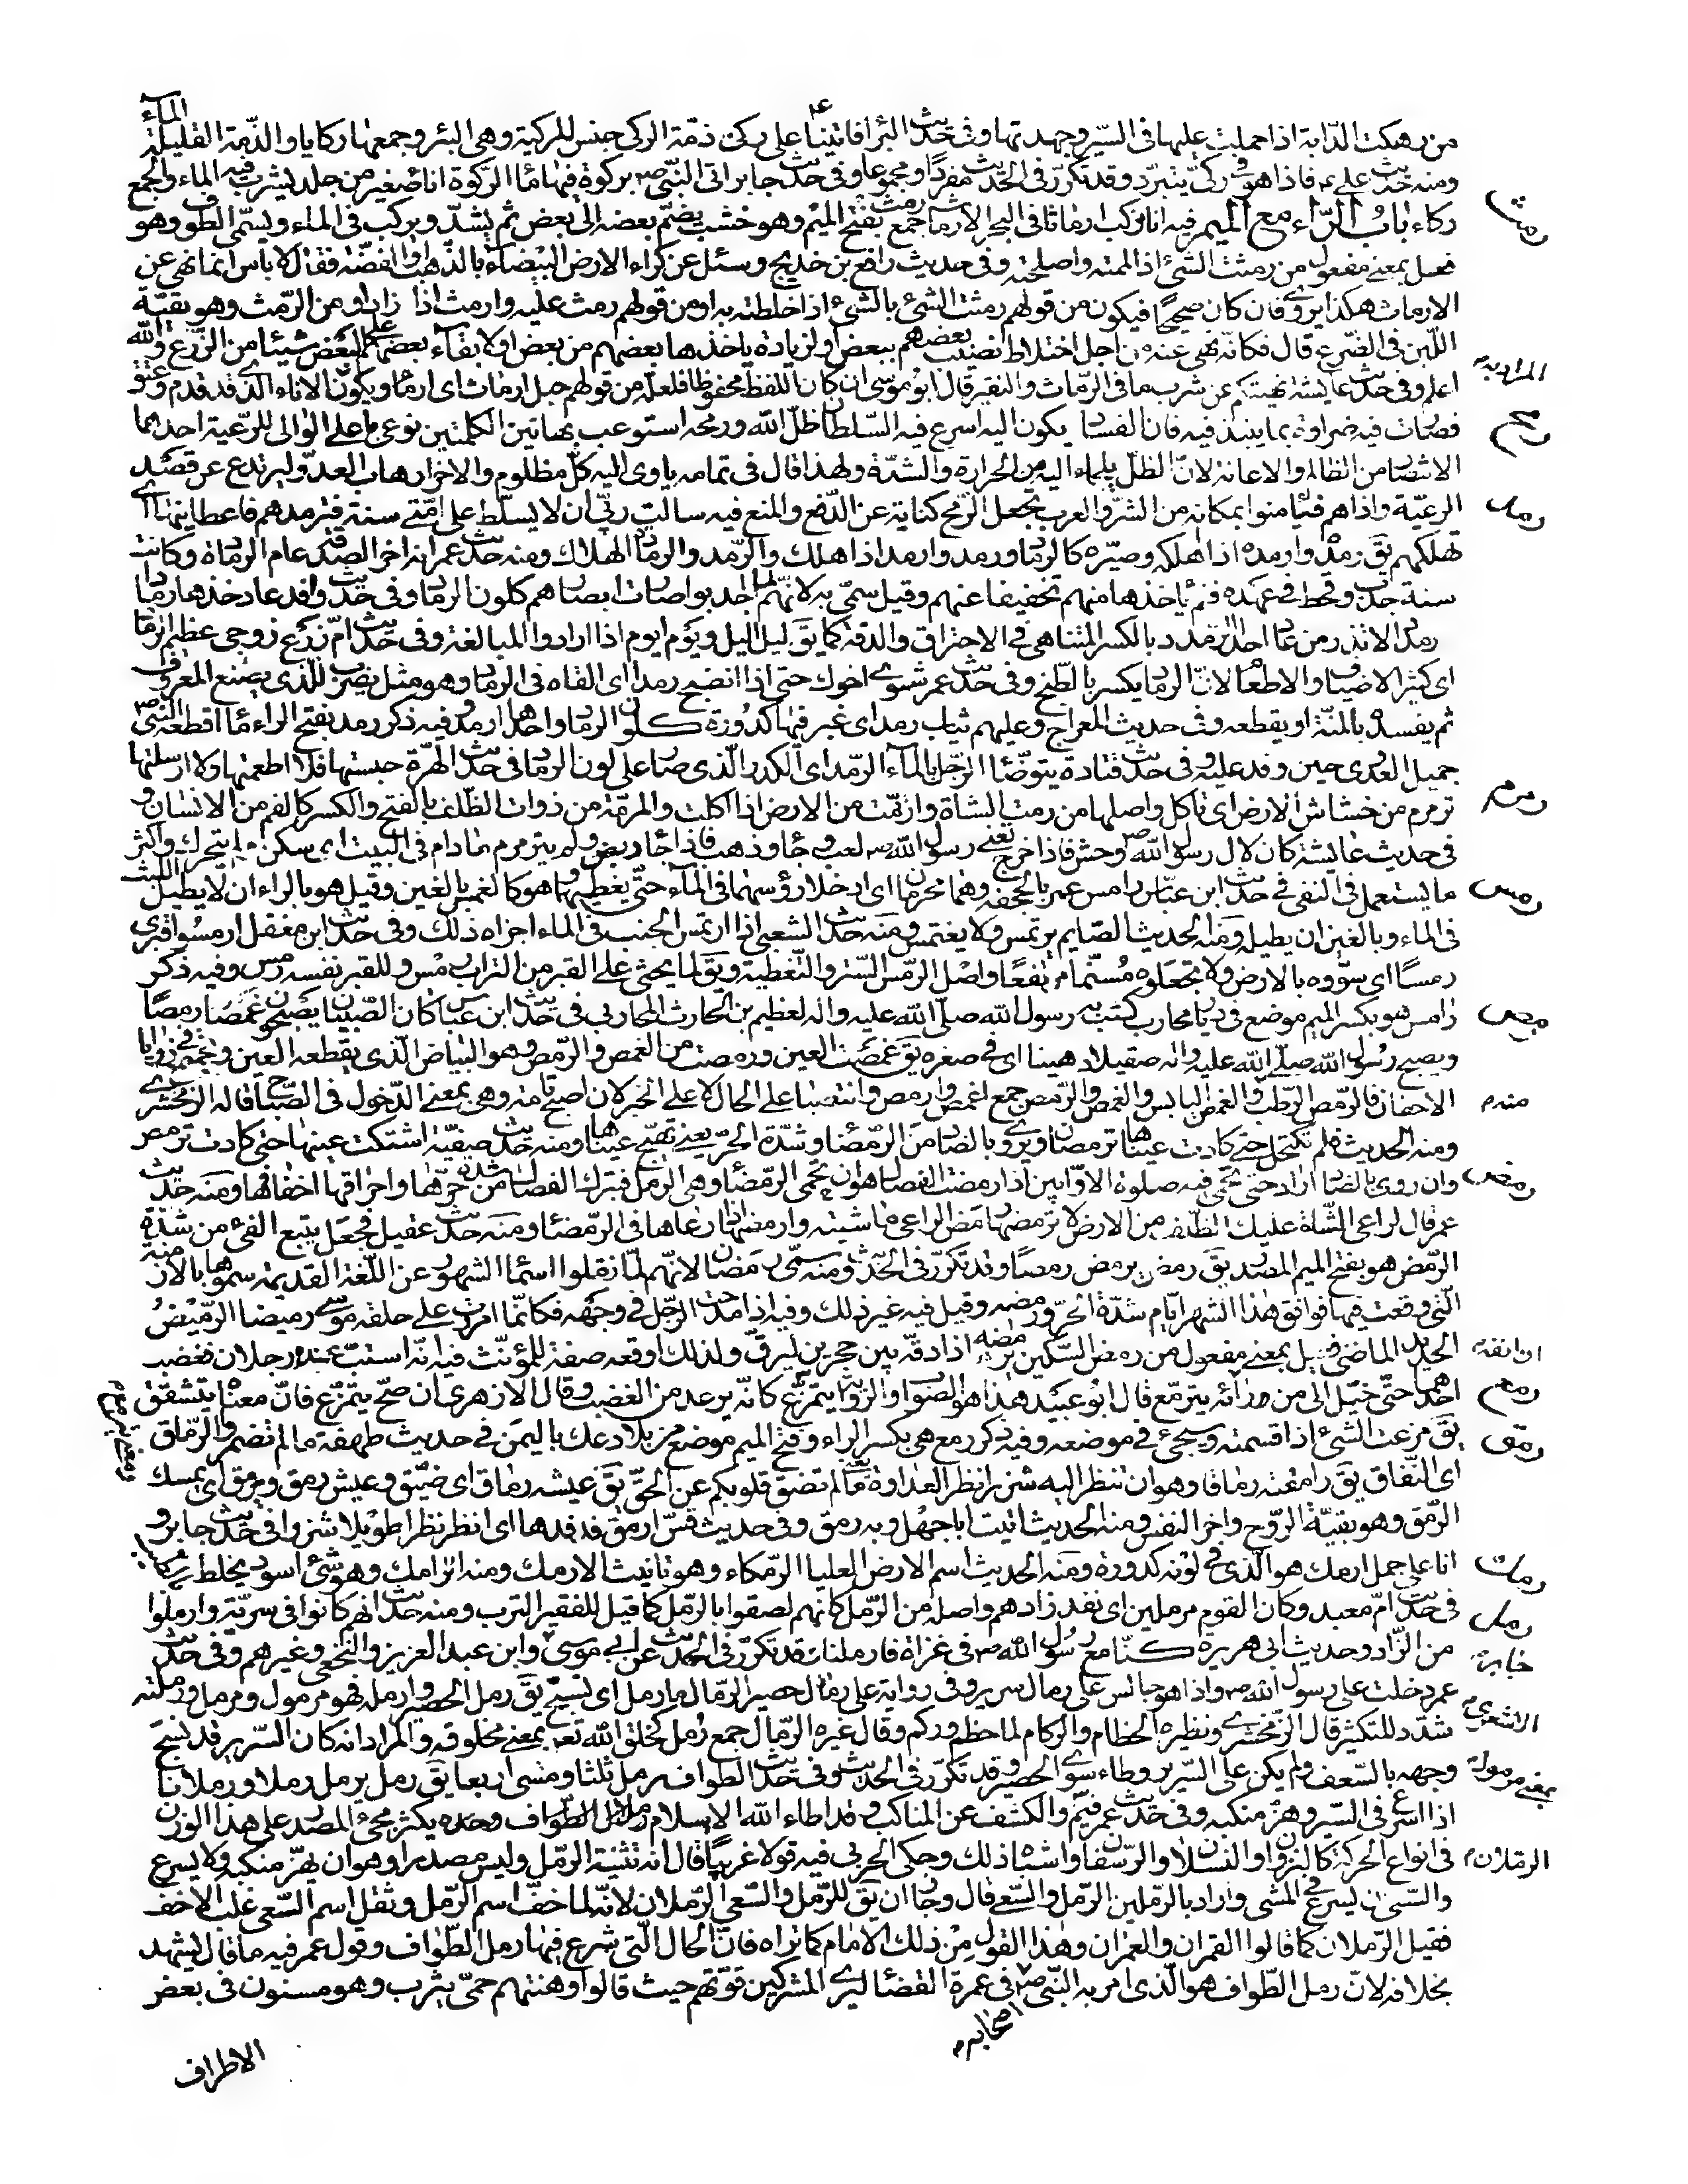 من رهكت الدّابة اذا حملت عليها فى السّير وجهدتها وفى حديث البراء فاتينا على ركىّ ذمّة الركى جنس للركية وهى البئر وجمعها ركايا والذّمة القليلة الماء
ومنه حديث علىّ ع فاذا هو فى ركىّ يتبرّد وقد تكرّر فى الحديث مفردًا ومجموعا وفى حديث جابر اتى النّبىّ ص بركوة فيها ماء الرّكوة اناء صغير من جلد يشرب فيه الماء والجمع
رمث
ركاء باب الرّاء مع الميم فيه انا نركب ارماثا فى البحر الارماث جمع رمث بفتح الميم وهو خشب يضمّ بعضه الى بعض ثم يشدّ ويركب فى الماء ويسمّى الطوف وهو
فعل بمعنى مفعول من رمثت الشئ اذا لممته واصلحته وفى حديث رافع بن خديج وسئل عن كراء الارض البيضاء بالذّهب والفضّة فقال لا باس انما نهى عن
الارماث هكذا يروى فان كان صحيحًا فيكون من قولهم رمثت الشئ بالشئ اذا خلطته به او من قولهم رمث عليه وارمث اذا زاد او من الرّمث وهو بقيّة
اللّبن فى الضّرع قال فكانّه نهى عنه من اجل اختلاط نصيب بعضهم ببعض او لزيادة ياخذها بعضهم من بعض او لابقاء بعضهم على البعض شيئا من الزّرع والله
المرادبه
اعلم وفى حديث عايشة نهيتكم عن شرب ما فى الرّماث والنقير قال ابو موسى ان كان اللفظ محفوظا فلعلّه من قولهم حبل ارماث اى ارمام ويكون الاناء الذى قد قدم وعتق
رمح
فصارت فيه ضراوة بما ينبذ فيه فان الفساد يكون اليه اسرع فيه السّلطان ظلّ الله ورمحه استوعب بهاتين الكلمتين نوعى ما على الوالى للرّعية احدهما
الانتصار من الظالم والاعانة لانّ الظلّ يلجاء اليه من الحرارة والشدّة ولهذا قال فى تمامه ياوى اليه كلّ مظلوم والاخر ارهاب العدوّ ليرتدع عن قصد
رمد
الرعيّة واذاهم فيامنوا بمكانه من الشرّ والعرب تجعل الرّمح كناية عن الدّفع والمنع فيه سالت ربّى ان لا يسلّط على امّتى سنة فترمدهم فاعطانيها اى
تهلكهم يق رمده وارمده اذا اهلكه وصيّره كالرماد ورمد وارمد اذا هلك والرّمد والرمادة الهلاك ومنه حديث عمر انه اخر الصدقة عام الرمادة وكانت
سنة جدب وقحط فى عهده فلم ياخذها منهم تخفيفا عنهم وقيل سمّى به لانّهم لما اجدبوا صارت الوانهم كلون الرماد وفى حديث وافد عاد خذها رمادا
رمددا لا تذر من عاد احدا الرمدد بالكسر المتناهى فى الاحتراق والدقة كما يق ليل اليل ويوم ايوم اذا ارادوا المبالغة وفى حديث امّ زرع زوجى عظيم الرماد
اى كثير الاضياف والاطعام لانّ الرماد يكثر بالطبخ وفى حديث عمر شوى اخوك حتى اذا انضج رمد اى القاه فى الرماد وهو مثل يضرب للذى يصنع المعروف
ثم يفسده بالمنّة او يقطعه وفى حديث المعراج وعليهم ثياب رمد اى غبر فيها كدورة كلون الرماد واحدها ارمد وفيه ذكر رمد بفتح الراء ماء اقطعه النّبىّ ص
جميل العدرى حين وفد عليه وفى حديث قتادة يتوضّا الرّجل بالماء الرّمد اى الكدر الّذى صار على لون الرماد فى حديث الهرّة حبستها فلا اطعمتها ولا ارسلتها
رمرم
ترمرم من خشاش الارض اى تاكل واصلها من رمت الشاة وارتمّت من الارض اذا اكلت والمرمّة من ذوات الظّلف بالفتح والكسر كالفم من الانسان و
فى حديث عايشة كان لال رسول الله ص وحش فاذا خرج يعنى رسول الله ص لعب وجاء وذهب فاذا جاء ربض ولم يترمرم ما دام فى البيت اى سكن ولم يتحرك واكثر
رمس
ما يستعمل فى النفى فى حديث ابن عبّاس رامس عمر بالجحفة وهما محرمان اى ادخلا رؤسهما فى الماء حتّى يغطيهما وهو كالغمس بالغين وقيل هو بالراء ان لا يطيل اللبث
فى الماء وبالغين ان يطيله ومنه الحديث الصّايم يرتمس ولا يغتمس ومنه حديث الشعبى اذا ارتمس الجنب فى الماء اجزاه ذلك وفى حديث ابن مغفل ارمسوا قبرى
رمسًا اى سوّوه بالارض ولا تجعلوه مسنّما مرتفعًا واصل الرّمس السّتر والتّغطية ويق لما يحثى على القبر من التراب رمس وللقبر نفسه رمس وفيه ذكر
رمص
رامس هو بكسر الميم موضع فى ديار محارب كتب به رسول الله صلّى الله عليه واله لعظيم بن الحارث المحاربى فى حديث ابن عباس كان الصّبيان يصبحون غمصا رمصًا
ويصبح رسول الله صلّى الله عليه واله صقيلا دهينا اى فى صغره يق غمصت العين ورمصت من الغمص والرّمص وهو البياض الّذى يقطعه العين ويجتمع فى زوايا
منه م
الاجفان فالرّمص الرّطب والغمص اليابس والغمص والرّمص جمع اغمص وارمص وانتصبا على الحال لا على الخبر لان اصبح تامّة وهى بمعنى الدّخول فى الصّباح قاله الزمخشرى
ومنه الحديث فلم تكتحل حتى كادت عيناها ترمصان ويروى بالضاد من الرّمضاء وشدّة الحرّ يعنى تهيج عيناها ومنه حديث صفيّة اشتكت عينها حتى كادت ترمص
رمض
وان روى بالضاد اراد حتى تحمى فيه صلوة الاوّابين اذا رمضت الفصال هو ان تحمى الرّمضاء وهى الرمل فتبرك الفصال من شدّة حرّها واحراقها اخفافها ومنه حديث
عمر قال لراعى الشّاة عليك الظّلف من الارض لا ترمضها رمض الراعى ماشيته وارمضها اذا رعاها فى الرّمضاء ومنه حديث عقيل فجعل يتتبع الفئ من شدّة
الرّمض هو بفتح الميم المصدر يق رمض يرمض رمضًا وقد تكرّر فى الحديث ومنه سمّى رمضان لانهم لمّا نقلوا اسماء الشهور عن اللّغة القديمة سموها بالازمنة
الّتى وقعت فيها فوافق هذا الشهر ايّام شدّة الحرّ ورمضه وقيل فيه غير ذلك وفيه اذا مدحت الرّجل فى وجهه فكانّما امررت على حلقه موسى رميضا الرّميض
ان انفه
الحديد الماضى فعيل بمعنى مفعول من رمض السّكين يرمضه اذا دقّه بين حجرين ليرقّ ولذلك اوقعه صفة للمؤنّث فيه انّه استبّ عنده رجلان فغضب
رمع
احدهما حتّى خيّل الى من وراءه يترمّع قال ابو عبيد هذا هو الصّواب والرّواية يتمزّع كانّه يرعد من الغضب وقال الازهرى ان صحّ يتمزّع فانّ معناه يتشقّق
رمق
يق مزعت الشئ اذا قسمته وسيجئ فى موضعه وفيه ذكر رمع هى بكسر الراء وفتح الميم موضع من بلاد عك باليمن فى حديث طهفة ما لم تضمروا الرّماق
اى النّفاق يق رامقته رماقا وهو ان تنظر اليه شزرا نظر العداوة يعنى ما لم تضق قلوبكم عن الحقّ يق عيشه رماق اى ضيّق وعيش رمق ومرمق اى يمسك
الرّمق وهو بقيّة الرّوح واخر النفس ومنه الحديث اتيت ابا جهل وبه رمق وفى حديث قسّ ارمق فدفدها اى انظر نظرا طويلا شزرا فى حديث جابر و
رمك
انا على جمل ارمك هو الّذى فى لونه كدورة ومنه الحديث اسم الارض العليا الرّمكاء وهو تانيث الارمك ومنه الرّامك وهو شئ اسود يخلط
رمل
فى حديث امّ معبد وكان القوم مرملين اى نفد زادهم واصله من الرّمل كانهم لصقوا بالرّمل كما قيل للفقير الترب ومنه حديث انهم كانوا فى سريّة وارملوا
خابره
من الزّاد وحديث ابى هريرة كنّا مع رسول الله ص فى غزاة فارملنا وقد تكرّر فى الحديث عن ابى موسى وابن عبد العزيز والنّخعى وغيرهم وفى حديث
عمر دخلت على رسول الله ص واذا هو جالس على رمال سرير وفى رواية على رمال حصير الرّمال ما رمل اى نسج يق رمل الحصير وارمله فهو مرمول ومرمل ورمّلته
الاشعرى م
شدّد للتكثير قال الزّمخشرى ونظيره الحطام والركام لما حطم وركم وقال غيره الرّمال جمع رمل كخلق الله تعم بمعنى مخلوقه والمراد انه كان السّرير قد نسج
بمعنى مرمولة
وجهه بالسّعف ولم يكن على السّرير وطاء سوى الحصير وقد تكرّر فى الحديث وفى حديث الطواف رمل ثلثا ومشى اربعا يق رمل يرمل رملا ورملانا
اذا اسرع فى السّير وهزّ منكبيه وفى حديث عمر فيم الرّملان والكشف عن المناكب وقد اطاء الله الاسلام الطّواف وحده يكثر مجئ المصدر على هذا الوزن
الرملان م
فى انواع الحركة كالنزوان والنسلان والرّسفان واشباه ذلك وحكى الحربى فيه قولا غريبًا قال انه تثنية الرّمل وليس مصدرا وهو ان يهزّ منكبيه ولا يسرع
والسّعى ان يسرع فى المشى واراد بالرّملين الرّمل والسّعى قال وجاز ان يق للرّمل والسّعى الرّملان لانّه لما خفّ اسم الرّمل وثقل اسم السّعى غلب الاخف
فقيل الرّملان كما قالوا القمران والعمران وهذا القول من ذلك الامام كما تراه فانّ الحال الّتى شرع فيها رمل الطّواف وقول عمر فيه ما قال يشهد
بخلافه لانّ رمل الطّواف هو الّذى امر به النّبىّ ص اصحابه م فى عمرة القضاء ليرى المشركين قوّتهم حيث قالوا وهنتهم حمّى يثرب وهو مسنون فى بعض
الاطراف